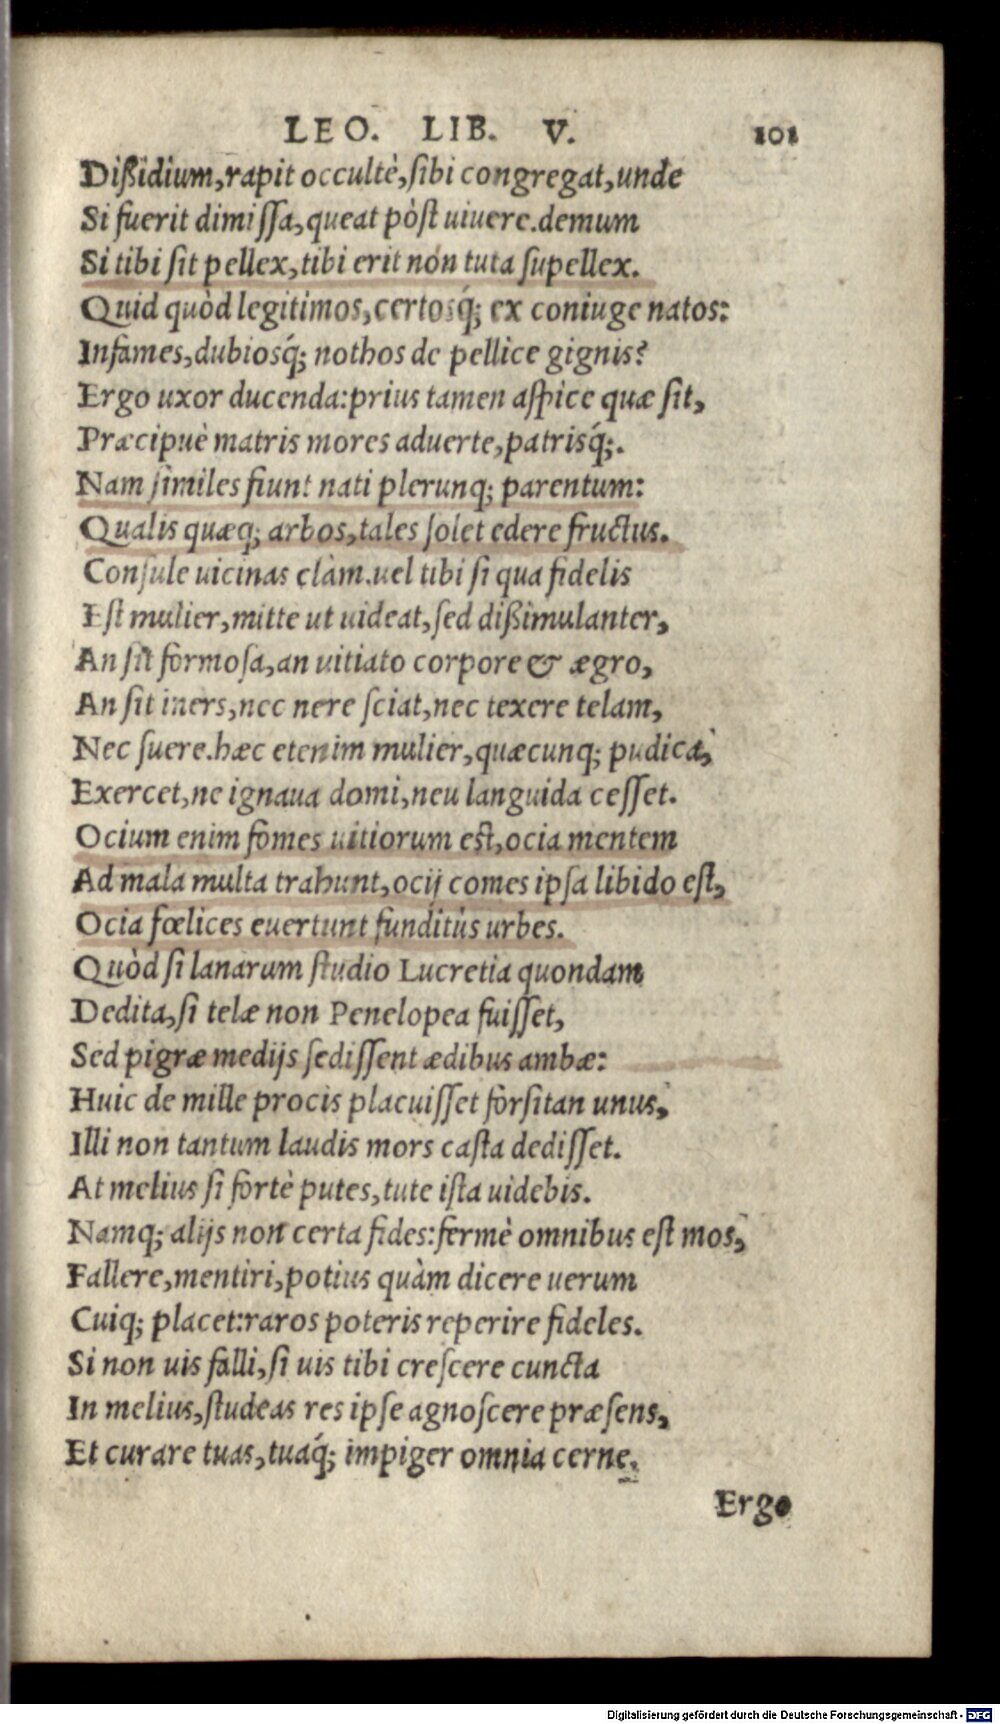 LEO. LIB. V. 101
Dißidium,rapit occultè,sibi congregat,unde
Si fuerit dimissa,queat pòst uiuere.demum
Si tibi sit pellex,tibi erit non tuta supellex.
Quid quòd legitimos,certosq́; ex coniuge natos:
Infames,dubiosq́; nothos de pellice gignis?
Ergo uxor ducenda:prius tamen aspice quæ sit,
Præcipuè matris mores aduerte,patrisq́;.
Nam similes fiunt nati plerunq; parentum:
Qualis quæq; arbos,tales solet edere fructus.
Consule uicinas clàm.uel tibi si qua fidelis
Est mulier,mitte ut uideat,sed dißimulanter,
An sit formosa,an uitiato corpore & ægro,
An sit iners,nec nere sciat,nec texere telam,
Nec suere.hæc etenim mulier,quæcunq; pudica,
Exercet,ne ignaua domi,neu languida cesset.
Ocium enim fomes uitiorum est,ocia mentem
Ad mala multa trahunt,ocij comes ipsa libido est,
Ocia fœlices euertunt funditùs urbes.
Quòd si lanarum studio Lucretia quondam
Dedita,si telæ non Penelopea fuisset,
Sed pigræ medijs sedissent ædibus ambæ:
Huic de mille procis placuisset forsitan unus,
Illi non tantum laudis mors casta dedisset.
At melius si fortè putes,tute ista uidebis.
Namq; alijs non certa fides:fermè omnibus est mos,
Fallere,mentiri,potius quàm dicere uerum
Cuiq; placet:raros poteris reperire fideles.
Si non uis falli,si uis tibi crescere cuncta
In melius,studeas res ipse agnoscere præsens,
Et curare tuas,tuaq́; impiger omnia cerne.
Ergo
Digitalisierung gefördert durch die Deutsche Forschungsgemeinschaft - DFG